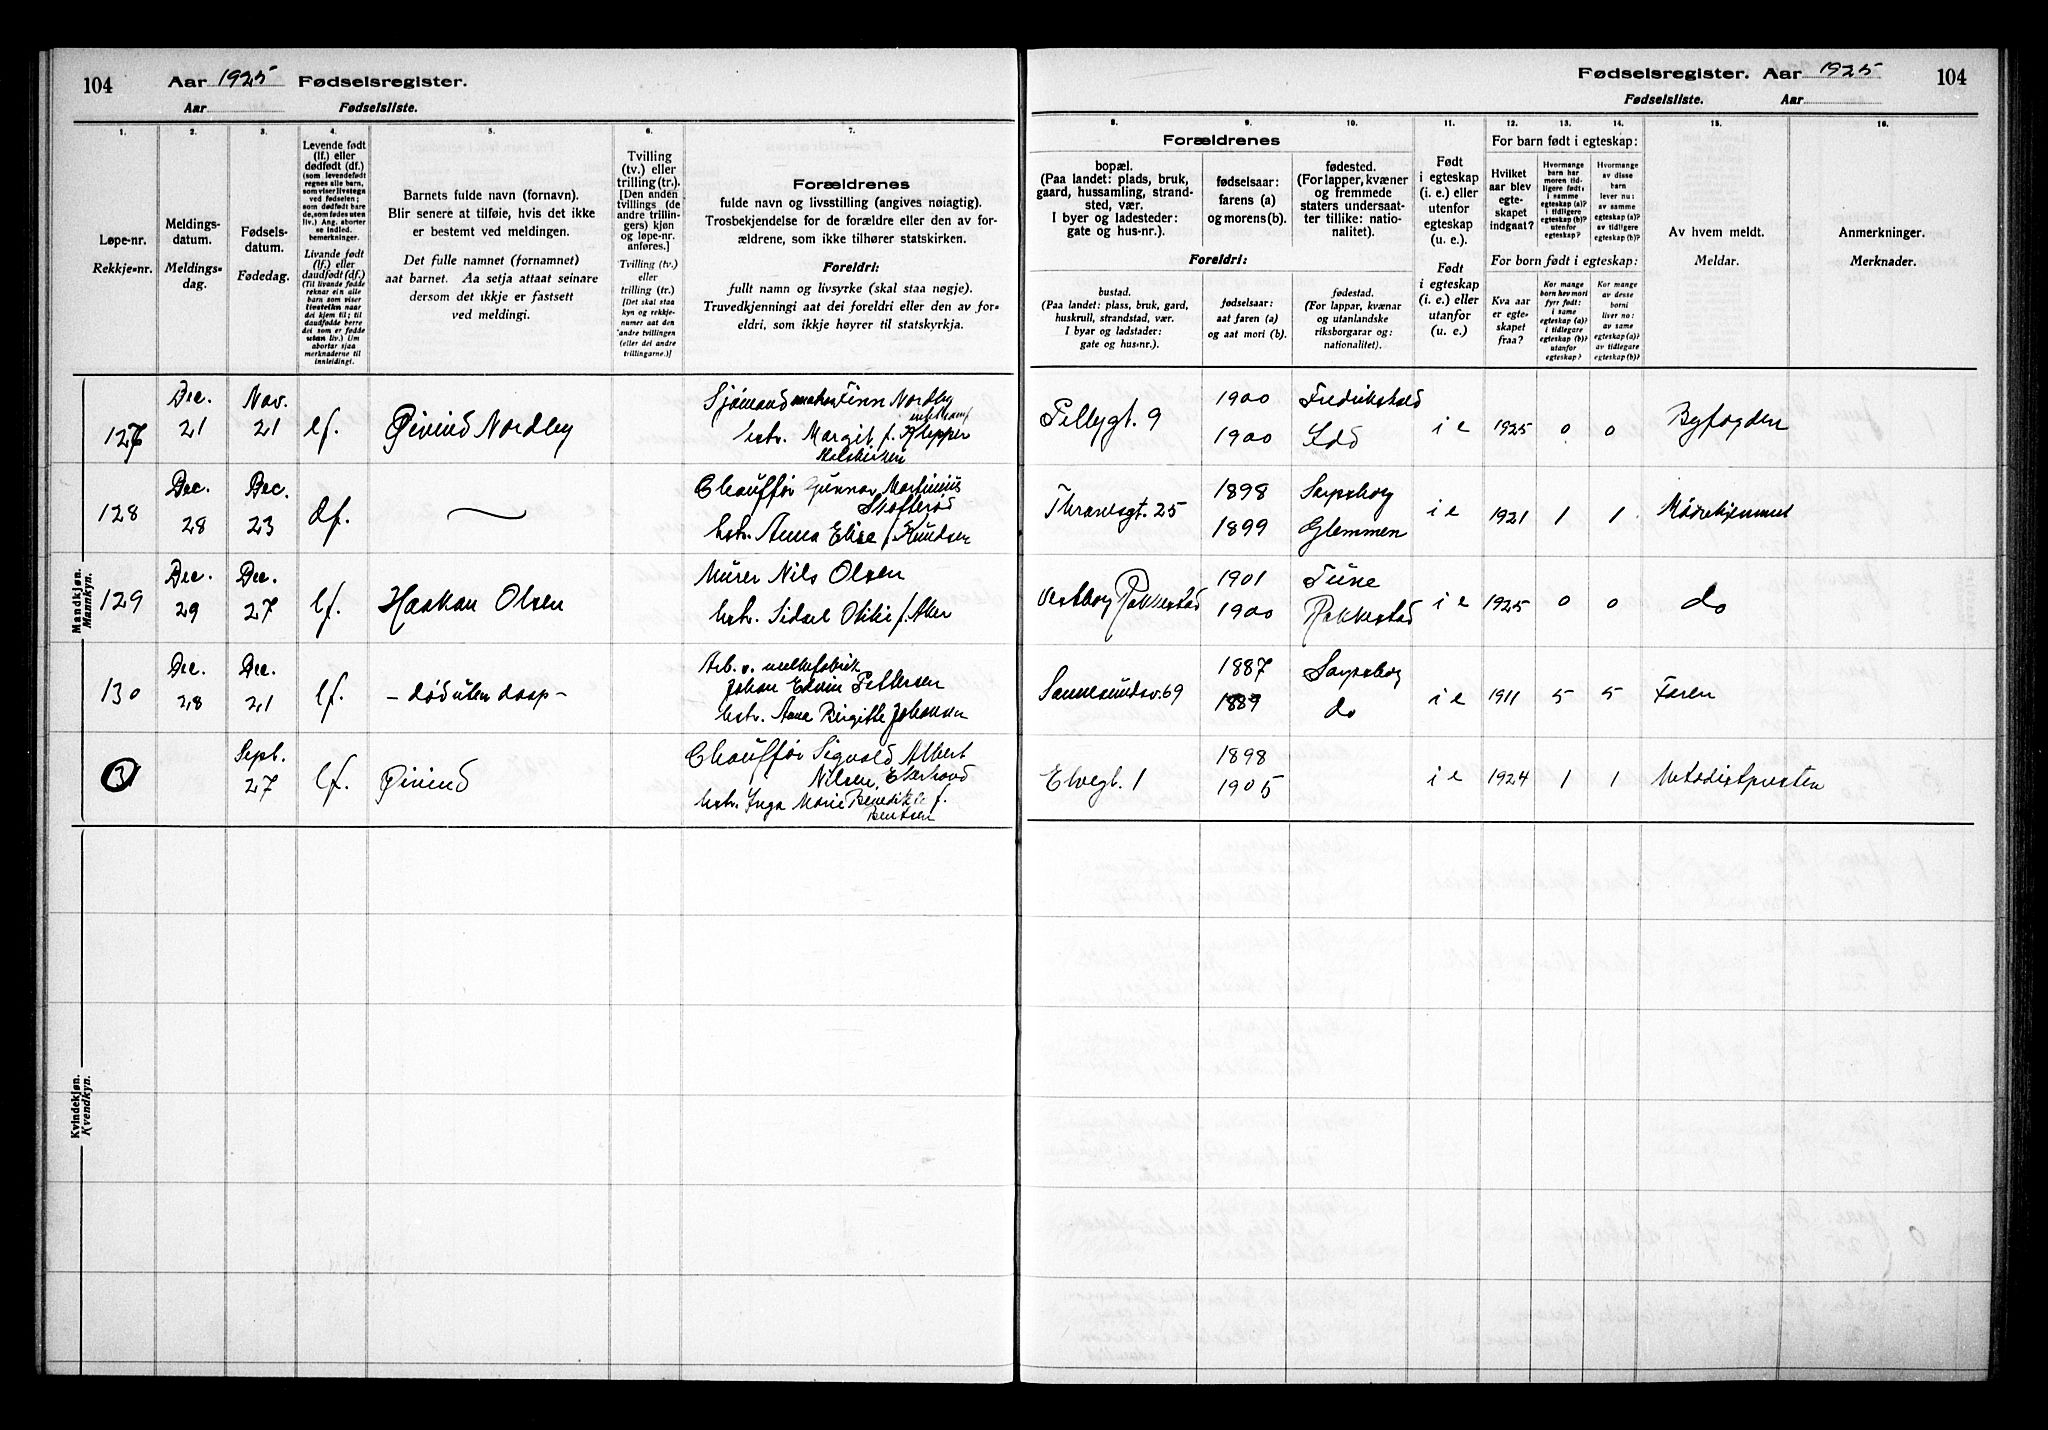 104 Aar 1925 Fødselsregister.
Aar Fødselsliste.
1. 2. 3. 4. 5. 6. 7.
Løpe-nr.
Rekkje-nr.
Meldings-
datum.
Meldings-
dag.
Fødsels-
datum.
Fødedag.
Levende født
(lf.) eller
dødfødt (df.)
(som levendefødt
regnes alle barn,
som viser livstegn
ved fødselen;
som dødfødt bare
de, som fødes uten
liv.) Ang. aborter
se indled.
bemerkninger.
Livande født
(lf.) eller
daudfødt (df.)
(Til livande fødde
reknar ein alle
barn som viser
livsteikn naar
dei kjem til; til
daudfødde berre
dei som er fødde
utan liv.) Um
abortar sjaa
merknaderne til
innleidingi.
Barnets fulde navn (fornavn).
Blir senere at tilføie, hvis det ikke
er bestemt ved meldingen.
Det fulle namnet (fornamnet)
aat barnet. Aa setja attaat seinare
dersom det ikkje er fastsett
ved meldingi.
Tvilling
(tv.) eller
trilling (tr.).
[Den anden
tvillings (de
andre trillin-
gers) kjøn
og løpe-nr.
anføres.]
Tvilling (tv.)
eller
trilling (tr.)
[Det skal staa
kyn og rekkje-
numer aat den
andre tvillingen
(eller dei andre
trillingarne.)]
Forældrenes
fulde navn og livsstilling (angives nøiagtig).
Trosbekjendelse for de forældre eller den av for-
ældrene, som ikke tilhører statskirken.
Foreldri:
fullt namn og livsyrke (skal staa nøgje).
Truvedkjenningi aat dei foreldri eller den av for-
eldri, som ikkje høyrer til statskyrkja.
Mandkjøn.
Mannkyn.
127 Dec. 21 Nov. 21 lf. Øivind Nordby
Sjömand Finn Nordby
hstr. Margit f. Klepper
128 Dec. 28 Dec. 23 df.
Chauffør Gunnar Martinius
hstr. Anna Elise f. Knudsen
129 Dec. 29 Dec. 27 lf. Haakon Olsen
Murer Nils Olsen
hstr. Sidsel f. Aker
130 Dec. 28 Dec. 21 lf. - død uten daap -
Arb. v. melkefabrik
Johan Edvin Pettersen
hstr. Anne Birgitte Johansen
131 Sept. 27 lf. Øivind
Chauffør Sigvald Albert
Nilsen,
hstr. Inga Marie Benedikte f.
Bentsen
Kvindekjøn.
Kvendkyn.
Fødselsregister. Aar 1925 104
Fødselsliste. Aar
8. 9. 10. 11. 12. 13. 14. 15. 16.
Forældrenes
bopæl.
(Paa landet: plads, bruk,
gaard, hussamling, strand-
sted, vær.
I byer og ladesteder:
gate og hus-nr.).
fødselsaar:
farens (a)
og morens(b).
fødested.
(For lapper, kvæner
og fremmede
staters undersaat-
ter tillike: natio-
nalitet).
Foreldri:
bustad.
(Paa landet: plass, bruk, gard,
huskrull, strandstad, vær.
I byar og ladstader:
gate og hus-nr.).
fødselsaar:
aat faren (a)
og aat mori (b).
fødestad.
(For lappar, kvænar
og utanlandske
riksborgarar og:
nationalitet).
Født
i egteskap
(i. e.) eller
utenfor
egteskap
(u. e.).
Født
i egteskap
(i. e.) eller
utanfor
(u. e.)
For barn født i egteskap:
Hvilket
aar blev
egte-
skapet
indgaat?
Hvormange
barn har
moren tid-
ligere født:
i samme
egteskap (a)?
i tidligere
egteskap (b)?
utenfor
egteskap?
Hvormange
av disse
barn
lever nu:
av samme
egteskap (a)?
av tidligere
egteskap (b)?
For born født i egteskap:
Kva aar
er egte-
skapet
fraa?
Kor mange
born hev mori
fyrr født:
i same
egteskap (a)?
i tidlegare
egteskap (b)?
utanfor
egteskap?
Kor mange
av desse
borni
liver no:
av same
egteskap (a)?
av tidlegare
egteskap (b)?
Av hvem meldt.
Meldar.
Anmerkninger.
Merknader.
Pellygt. 9 1900 Fredrikstad
1900 Idd i e 1925 0 0 Byfogden
Thranesgt. 25 1898 Sarpsborg
1899 Glemmen i e 1921 1 1 Mødrehjemmet
Vestborg Rakkestad 1901 Tune
1900 Rakkestad i e 1925 0 0 do
Sannesundsv. 69 1887 Sarpsborg
1889 do i e 1911 5 5 Faren
Elvegt. 1 1898
1905 i e 1924 1 1 Metodistpresten